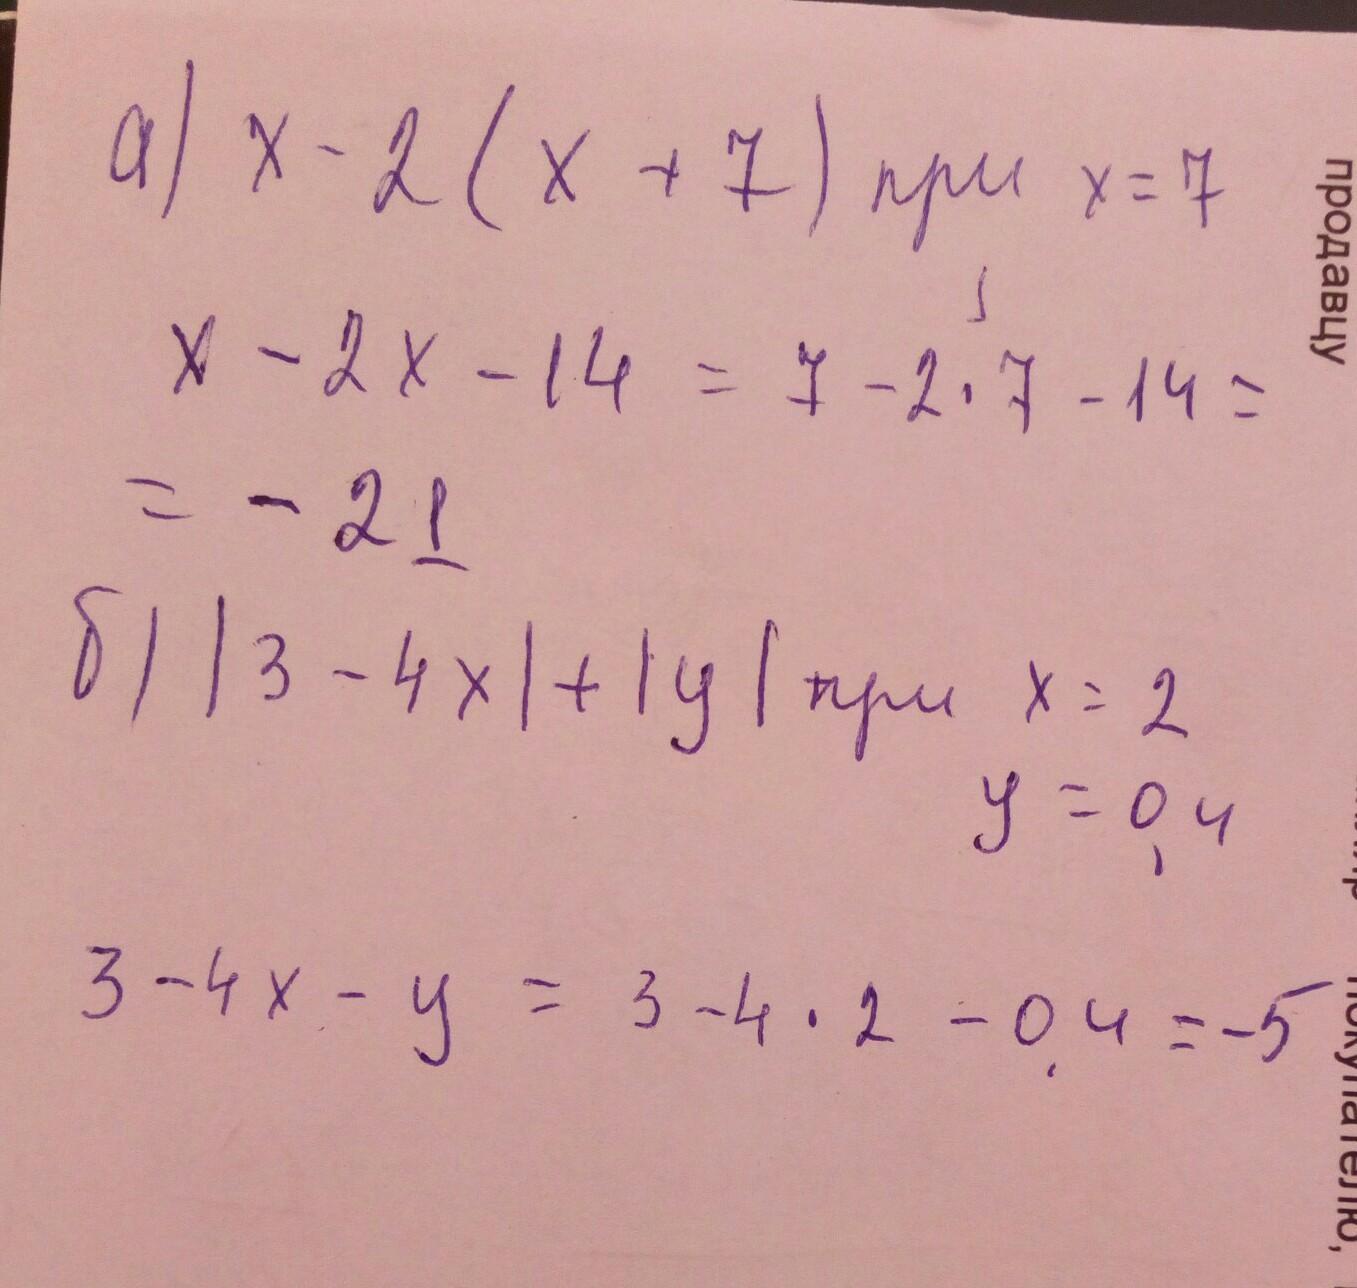 а) x - 2 (x + 7) при x = 7
x - 2x - 14 = 7 - 2 · 7 - 14 =
= - 21
б) |3 - 4x| + |y| при x = 2
y = 0,4
3 - 4x - y = 3 - 4 · 2 - 0,4 = -5
продавцу
покупателю,